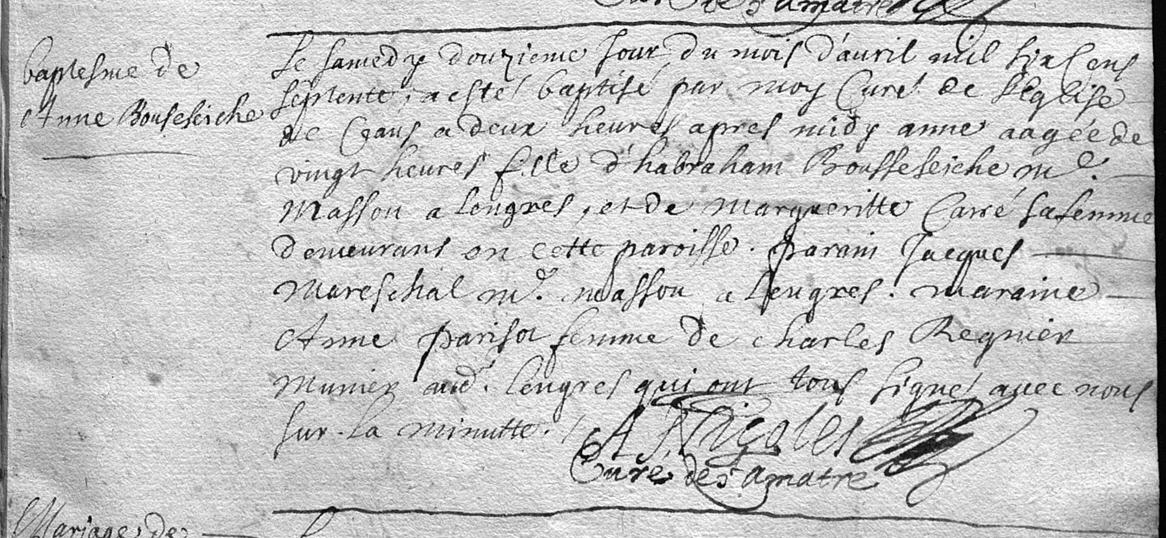 Curé de St amatre
baptesme de
Anne Bousseseiche
Le samedy douzieme Jour du mois d'auril mil six cens
septente, a esté baptisé par moy Curé de l'eglise
de Ceans a deux heures apres midy anne aagée de
vingt heures fille d'habraham Bousseseiche me.
Masson a lengres, et de margueritte Carré sa femme
demeurans en cette paroisse. parain Jacques
Mareschal me. masson a lengres. maraine
Anne parisot femme de charles Regnier
Munier aud. lengres qui ont tous signé auec nous
sur la minutte.
A Nigoles
Curé de St amatre
Mariage de